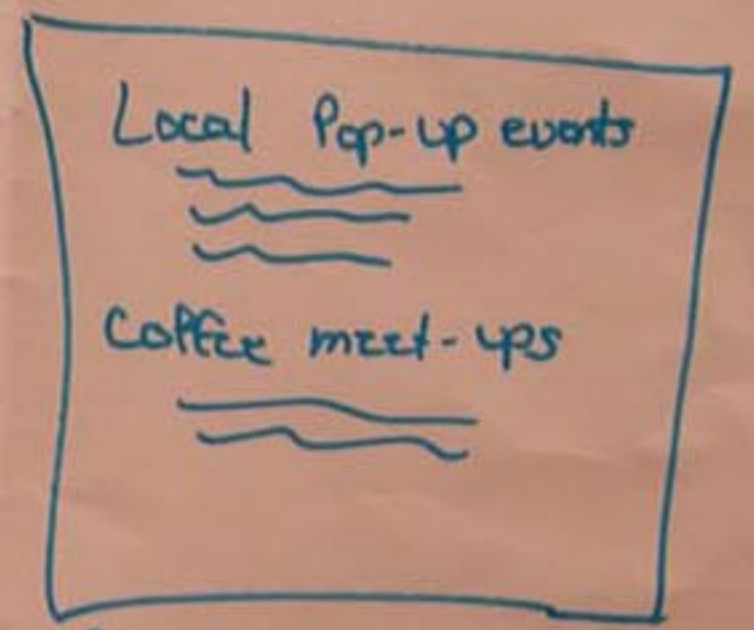 Local Pop-up events
Coffee meet-ups